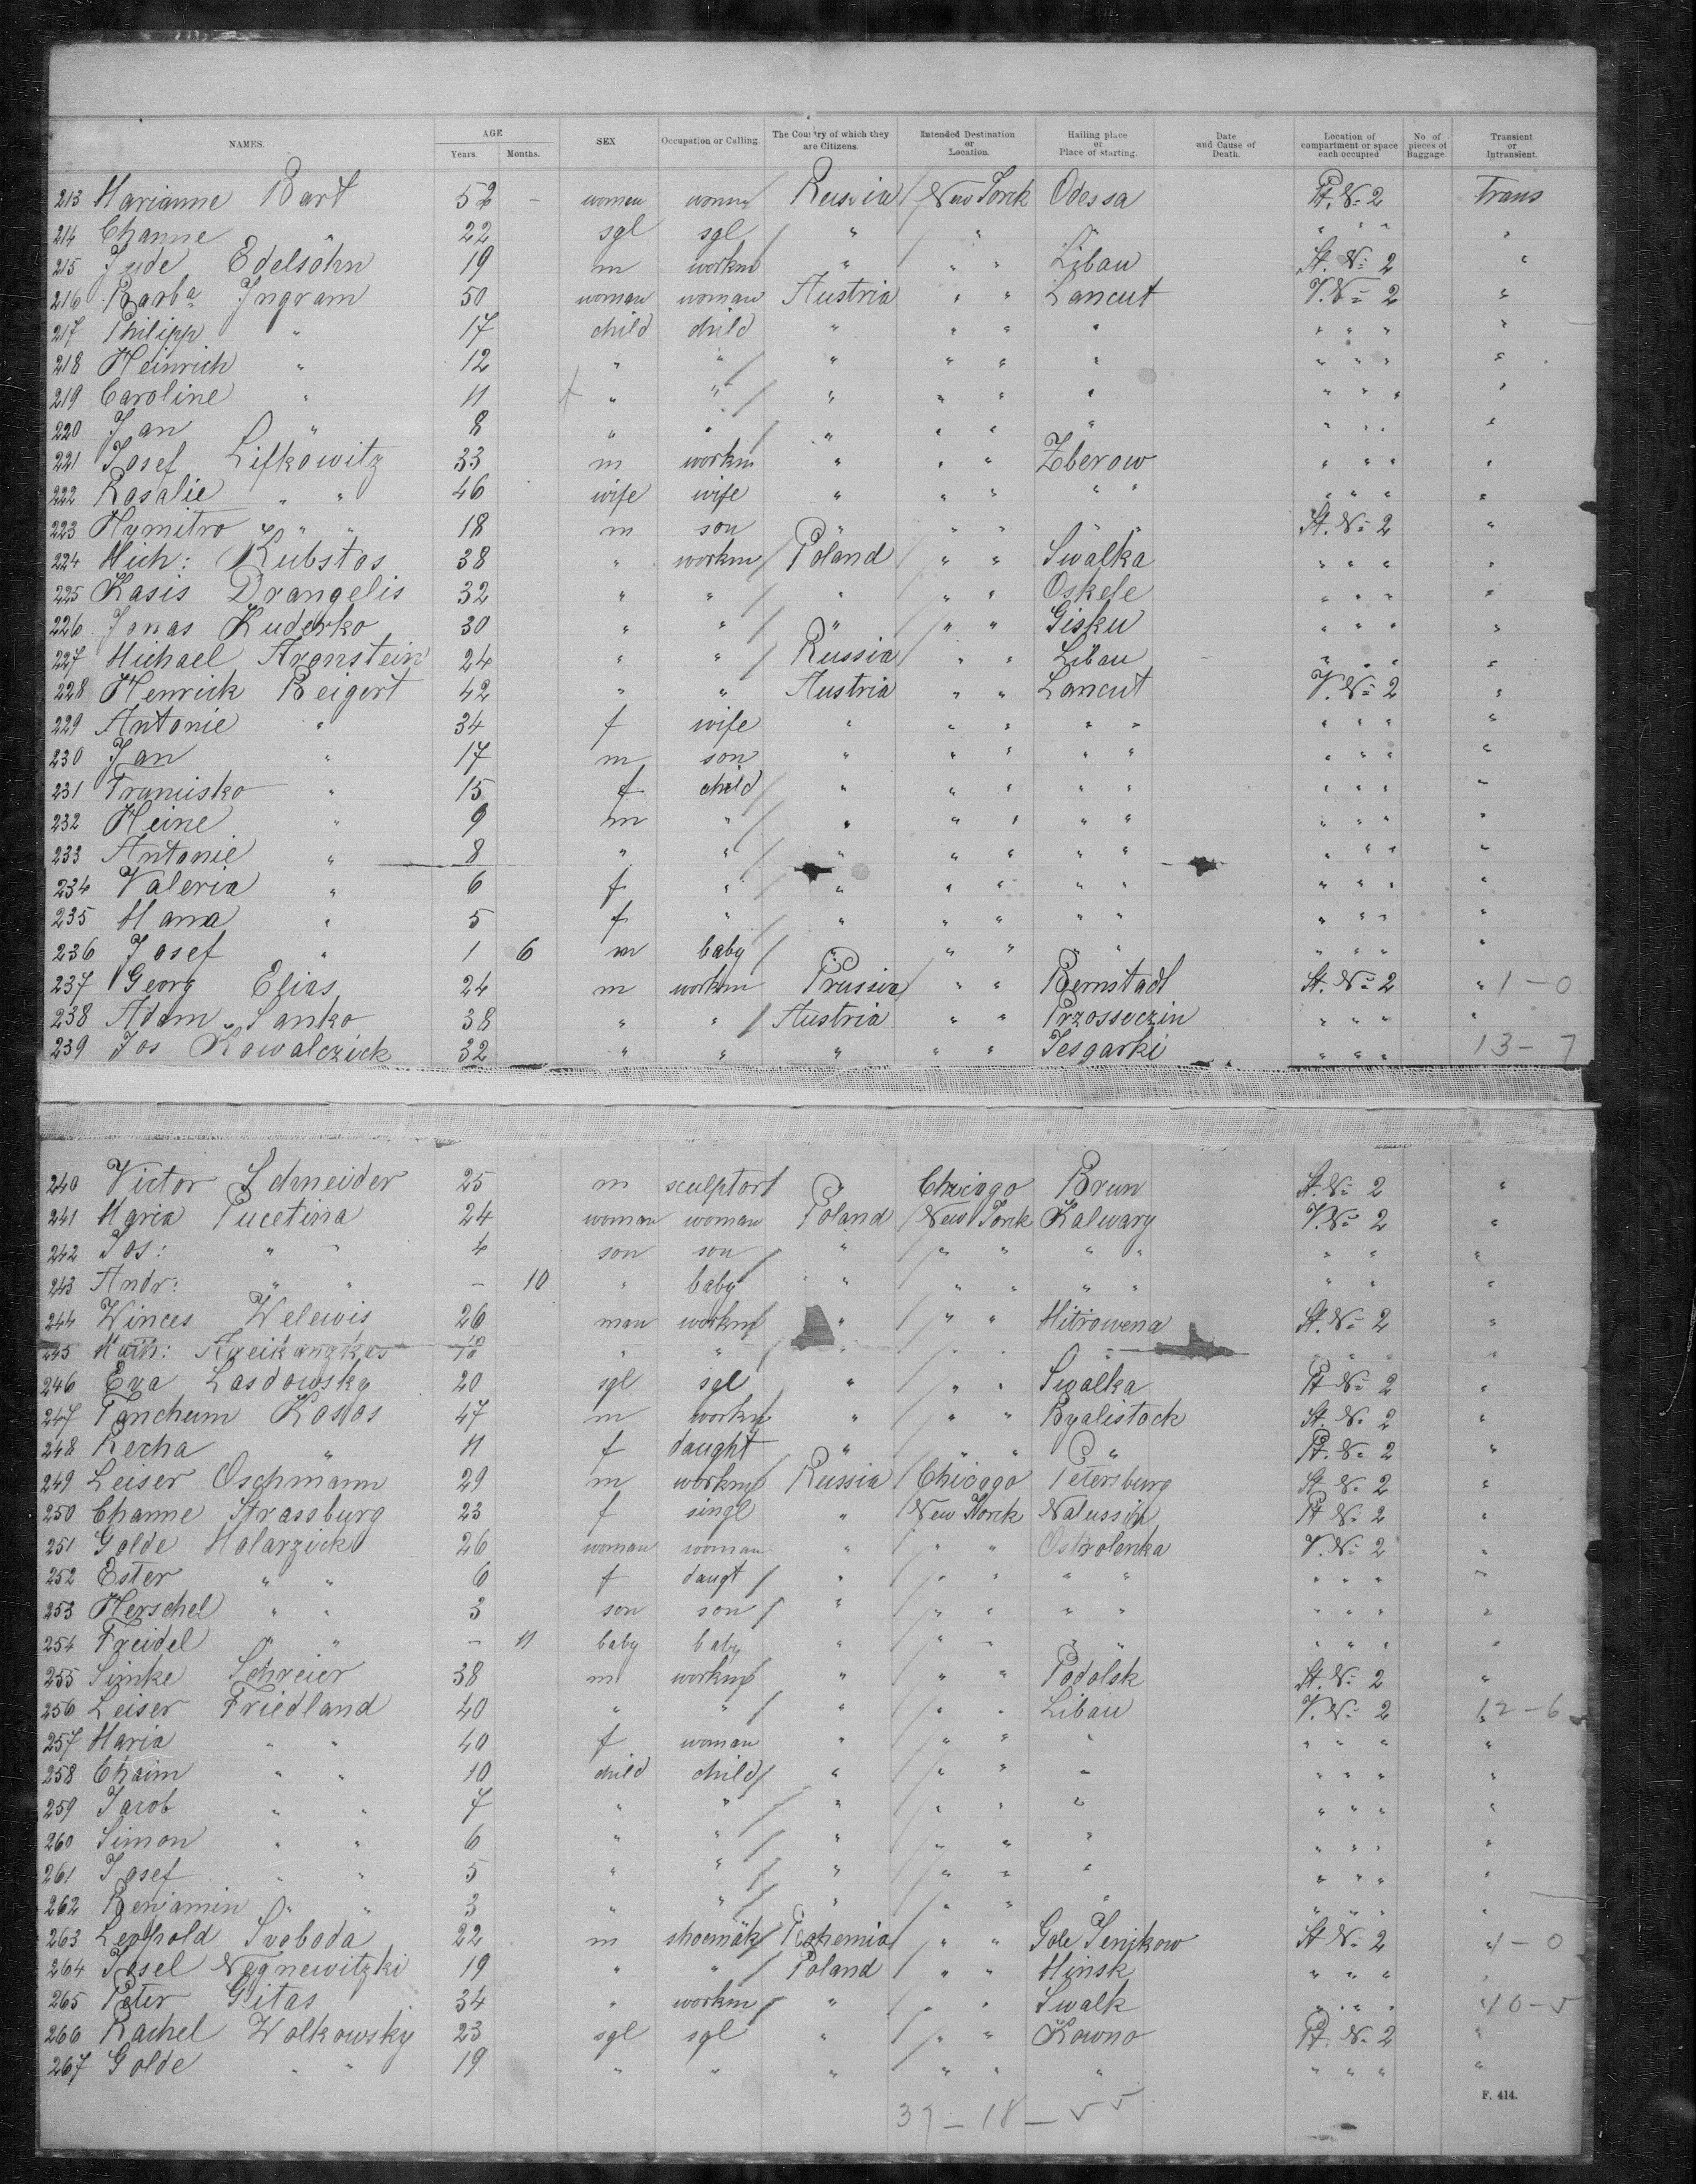 NAMES. AGE Years. Months. SEX Occupation or Calling. The Country of which they are Citizens. Intended Destination or Location. Hailing place or Place of starting. Date and Cause of Death. Location of compartment or space each occupied No of pieces of Baggage. Transient or Intransient.
213 Marianne Bart 52 - woman woman Russia New Yorck Odessa Pt. No 2 Trans
214 Channe " 22 sgl sgl " " " " " " "
215 Jude Edelsohn 19 m workm " " " Libau St. No 2 "
216 Barba Ingram 50 woman woman Austria " " Lancut V. No 2 "
217 Philipp " 17 child child " " " " " " " "
218 Heinrich " 12 " " " " " " " " " "
219 Caroline " 11 " " " " " " " " " "
220 Jan " 8 " " " " " " " " " "
221 Josef Lifkowitz 33 m workm " " " Zberow " " " "
222 Rosalie " " 46 wife wife " " " " " " " " "
223 Hymitro " " 18 m son " " " " " St. No 2 "
224 Mich: Kubstas 38 " workm Poland " " Swalka " " " "
225 Kasis Drangelis 32 " " " " " Oskele " " " "
226 Jonas Kuderko 30 " " " " " Gisku " " " "
227 Michael Aronstein 24 " " Russia " " Libau " " " "
228 Henrick Beigert 42 " " Austria " " Lancut V. No 2 "
229 Antonie " 34 f wife " " " " " " " " "
230 Jan " 17 m son " " " " " " " " "
231 Franцisko " 15 f child " " " " " " " " "
232 Heine " 9 m " " " " " " " " " "
233 Antonie " 8 " " " " " " " " " " "
234 Valeria " 6 f " " " " " " " " " "
235 Mana " 5 f " " " " " " " " " "
236 Josef " 1 6 m baby " " " " " " " "
237 Georg Elias 24 m workm Prussia " " Bernstadt St. No 2 " 1-0
238 Adam Sanko 38 " " Austria " " Przosseczin " " " "
239 Jos Kowalczick 32 " " " " " Jesgarki " " " 13-7
240 Victor Schneider 25 m sculptor " Chicago Brun St. No 2 "
241 Maria Pucetina 24 woman woman Poland New Yorck Kalwary V. No 2 "
242 Jos: " " 4 son son " " " " " " " "
243 Andr: " " - 10 " baby " " " " " " " "
244 Winces Welewis 26 man workm " " " Mitrowena St. No 2 "
245 Math: 18 " " " " " " " " " "
246 Eva Lasdowsky 20 sgl sgl " " " Swalka Pt No 2 "
247 Tanchum Kostos 47 m workm " " " Byalistock St. No 2 "
248 Recha " 11 f daught " " " " Pt. No 2 "
249 Leiser Oschmann 29 m workm Russia Chicago Petersburg St No 2 "
250 Channe Strassburg 23 f singl " New Yorck Natussin Pt No 2 "
251 Golde Molarzick 26 woman woman " " " Ostrolenka V. No 2 "
252 Ester " " 6 f daugt " " " " " " " " "
253 Herschel " " 3 son son " " " " " " " " "
254 Freidel " " - 11 baby baby " " " " " " " " "
255 Simke Schreier 38 m workm " " " Podolsk St. No 2 "
256 Leiser Friedland 40 " " " " " Libau V. No 2 12-6
257 Maria " " 40 f woman " " " " " " " "
258 Chaim " " 10 child child " " " " " " " "
259 Jacob " " 7 " " " " " " " " " "
260 Simon " " 6 " " " " " " " " " "
261 Josef " " 5 " " " " " " " " " "
262 Benjamin " " 3 " " " " " " " " " "
263 Leopold Svoboda 22 m shoemak Bohemia " " Gole Jenikow St No 2 4-0
264 Josel Nognewitzki 19 " " Poland " " Minsk " " " "
265 Peter Gitas 34 " workm " " " Swalk " " " 10-5
266 Rachel Wolkowsky 23 sgl sgl " " " Kowno Pt. No 2 "
267 Golde " " 19 " " " " " " " " " "
F. 414.